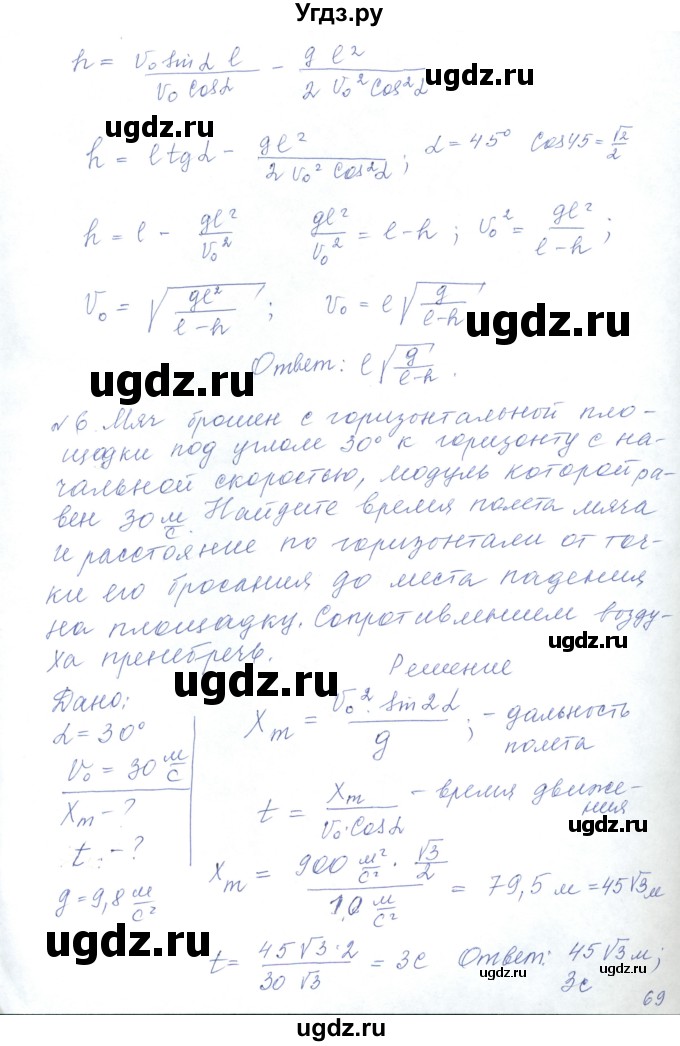 Угдз.ру
h = v₀ sinα l / v₀ cosα − g l² / 2 v₀² cos²α
ugdz.ru
ugdz.ru
h = l tgα − gl² / 2 v₀² cos²α ; α = 45° cos45 = √2/2
h = l − gl²/v₀² gl²/v₀² = l−h ; v₀² = gl²/l−h ;
ugdz.ru
v₀ = √(gl²/l−h) ; v₀ = l√(g/l−h)
ugdz.ru
Ответ: l√(g/l−h).
ugdz.ru
№6 Мяч брошен с горизонтальной пло-
щадки под углом 30° к горизонту с на-
ugdz.ru
чальной скоростью, модуль которой ра-
вен 30 м/с. Найдите время полета мяча
ugdz.ru
и расстояние по горизонтали от точ-
ки его бросания до места падения
на площадку. Сопротивлением возду-
ugdz.ru
ха пренебречь.
ugdz.ru
Решение
Дано:
α = 30°
Xm = v₀² · sin2α / g ; − дальность
полета
v₀ = 30 м/с
Xm − ?
t = Xm / v₀·cosα − время движе-
ния
ugdz.ru
t − ?
Xm = 900 м²/с² · √3/2 / 10 м/с² = 79,5 м = 45√3 м
g = 9,8 м/с²
ugdz.ru
t = 45√3·2 / 30√3 = 3с Ответ: 45√3 м;
3с
ugdz.ru
ugdz.ru
69
ugdz.ru